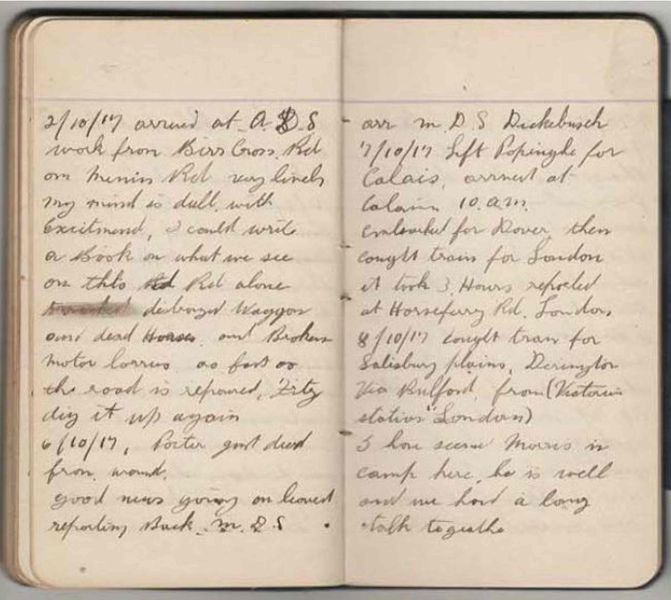 2/10/17 arrived at A.D.S
work from Birr Cross Rd
on Menin Rd very lively
my mind is dull with
Excitmend, I could write
a Book on what we see
on this Rd alone
distroyed Waggons
and dead Horses, and Broken
motor lorries as fast as
the road is repaired, Fritz
dig it up again
6/10/17, Porter just died
from wound.
good news going on leave
reporting Back M.D.S
arr M.D.S Dickebusch
7/10/17 Left Popinghe for
Calais, arrived at
Calais 10.a.m.
embarked for Dover, then
cought train for London
it took 3 Hours reported
at Horseferry Rd. London,
8/10/17 cought train for
Salisbury plains, Derington
Via Bulford, from (Victoria
station London)
I have seene Morris in
camp here, he is well
and we had a long
talk togeathe